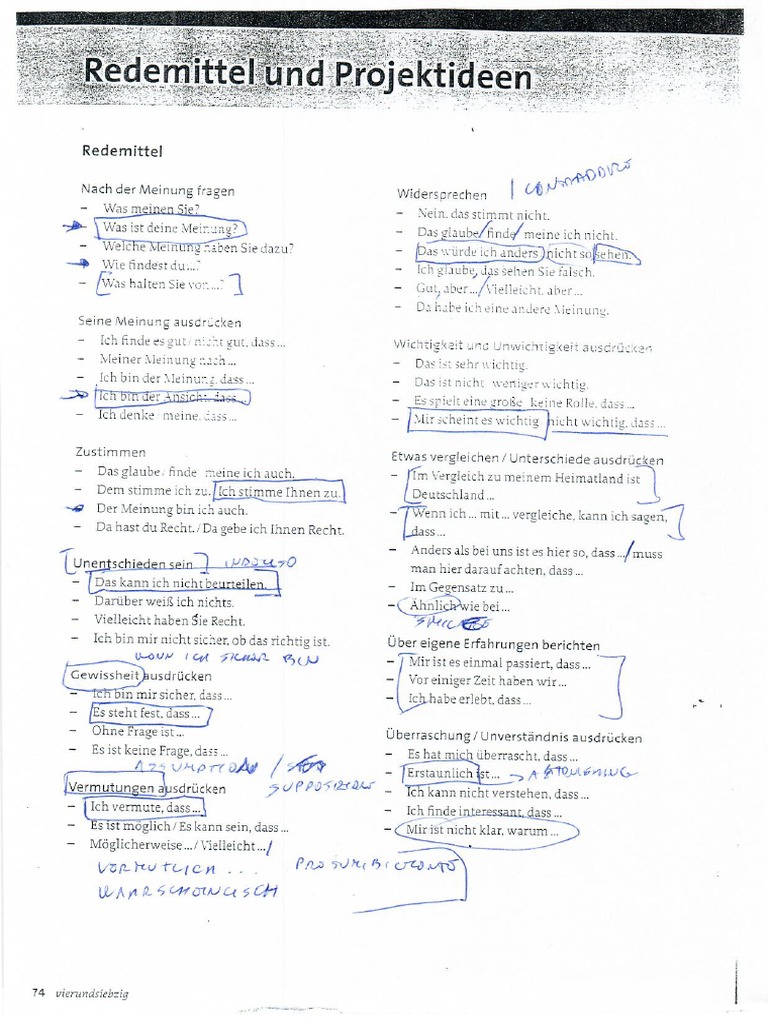 Redemittel und Projektideen
Redemittel
Nach der Meinung fragen
– Was meinen Sie?
– Was ist deine Meinung?
– Welche Meinung haben Sie dazu?
– Wie findest du...?
– Was halten Sie von...?
Seine Meinung ausdrücken
– Ich finde es gut / nicht gut, dass...
– Meiner Meinung nach...
– Ich bin der Meinung, dass...
– Ich bin der Ansicht, dass...
– Ich denke / meine, dass...
Zustimmen
– Das glaube / finde / meine ich auch.
– Dem stimme ich zu. / Ich stimme Ihnen zu.
– Der Meinung bin ich auch.
– Da hast du Recht. / Da gebe ich Ihnen Recht.
Unentschieden sein INDECISO
– Das kann ich nicht beurteilen.
– Darüber weiß ich nichts.
– Vielleicht haben Sie Recht.
– Ich bin mir nicht sicher, ob das richtig ist.
WENN ICH SICHER BIN
Gewissheit ausdrücken
– Ich bin mir sicher, dass...
– Es steht fest, dass...
– Ohne Frage ist...
– Es ist keine Frage, dass...
Vermutungen ausdrücken
– Ich vermute, dass...
– Es ist möglich / Es kann sein, dass...
– Möglicherweise... / Vielleicht... /
VERMUTLICH ...
Widersprechen
– Nein, das stimmt nicht.
– Das glaube / finde / meine ich nicht.
– Das würde ich anders / nicht so sehen.
– Ich glaube, das sehen Sie falsch.
– Gut, aber... / Vielleicht, aber...
– Da habe ich eine andere Meinung.
Wichtigkeit und Unwichtigkeit ausdrücken
– Das ist sehr wichtig.
– Das ist nicht / weniger wichtig.
– Es spielt eine große / keine Rolle, dass...
– Mir scheint es wichtig / nicht wichtig, dass...
Etwas vergleichen / Unterschiede ausdrücken
– Im Vergleich zu meinem Heimatland ist
Deutschland...
– Wenn ich... mit... vergleiche, kann ich sagen,
dass...
– Anders als bei uns ist es hier so, dass... / muss
man hier darauf achten, dass...
– Im Gegensatz zu...
– Ähnlich wie bei...
Über eigene Erfahrungen berichten
– Mir ist es einmal passiert, dass...
– Vor einiger Zeit haben wir...
– Ich habe erlebt, dass...
Überraschung / Unverständnis ausdrücken
– Es hat mich überrascht, dass...
– Erstaunlich ist...
– Ich kann nicht verstehen, dass...
– Ich finde interessant, dass...
– Mir ist nicht klar, warum...
74 vierundsiebzig